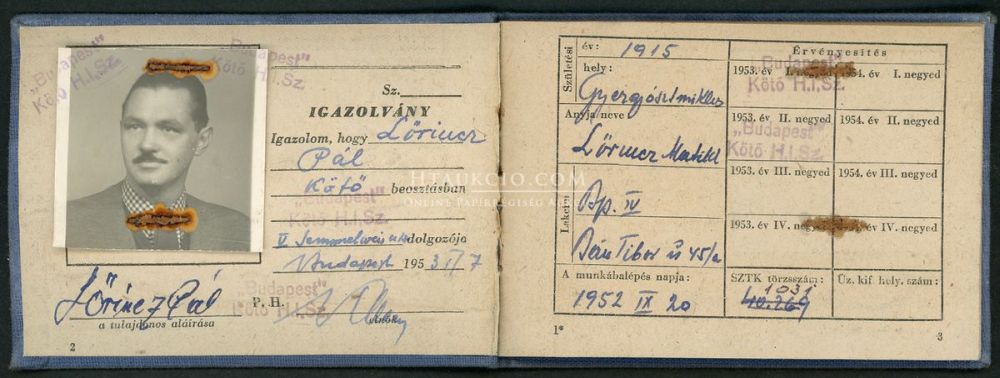 "Budapest"
Kötő H.I.Sz.
"Budapest"
Kötő H.I.Sz.
Sz.
IGAZOLVÁNY
Igazolom, hogy Lőrincz
Pál
Kötő beosztásban
V Semmelweis u dolgozója
Budapest, 1953 II/7
"Budapest"
Kötő H.I.Sz.
P. H.
elnök
Lőrincz Pál
a tulajdonos aláírása
2
HTAUKCIO.COM
Születési
év: 1915
hely:
Gyergyószentmiklos
Anyja neve
Lőrincz Matild
Lakcím
Bp. IV
Deán Tibor ú 45/a
A munkábalépés napja:
1952 IX 20
Érvényesítés
1953. év I. negyed
1954. év I. negyed
"Budapest"
Kötő H.I.Sz.
1953. év II. negyed
1954. év II. negyed
"Budapest"
Kötő H.I.Sz.
1953. év III. negyed
1954. év III. negyed
1953. év IV. negyed
1954. év IV. negyed
SZTK törzsszám:
1031
40.269
Üz. kif. hely. szám:
1*
3